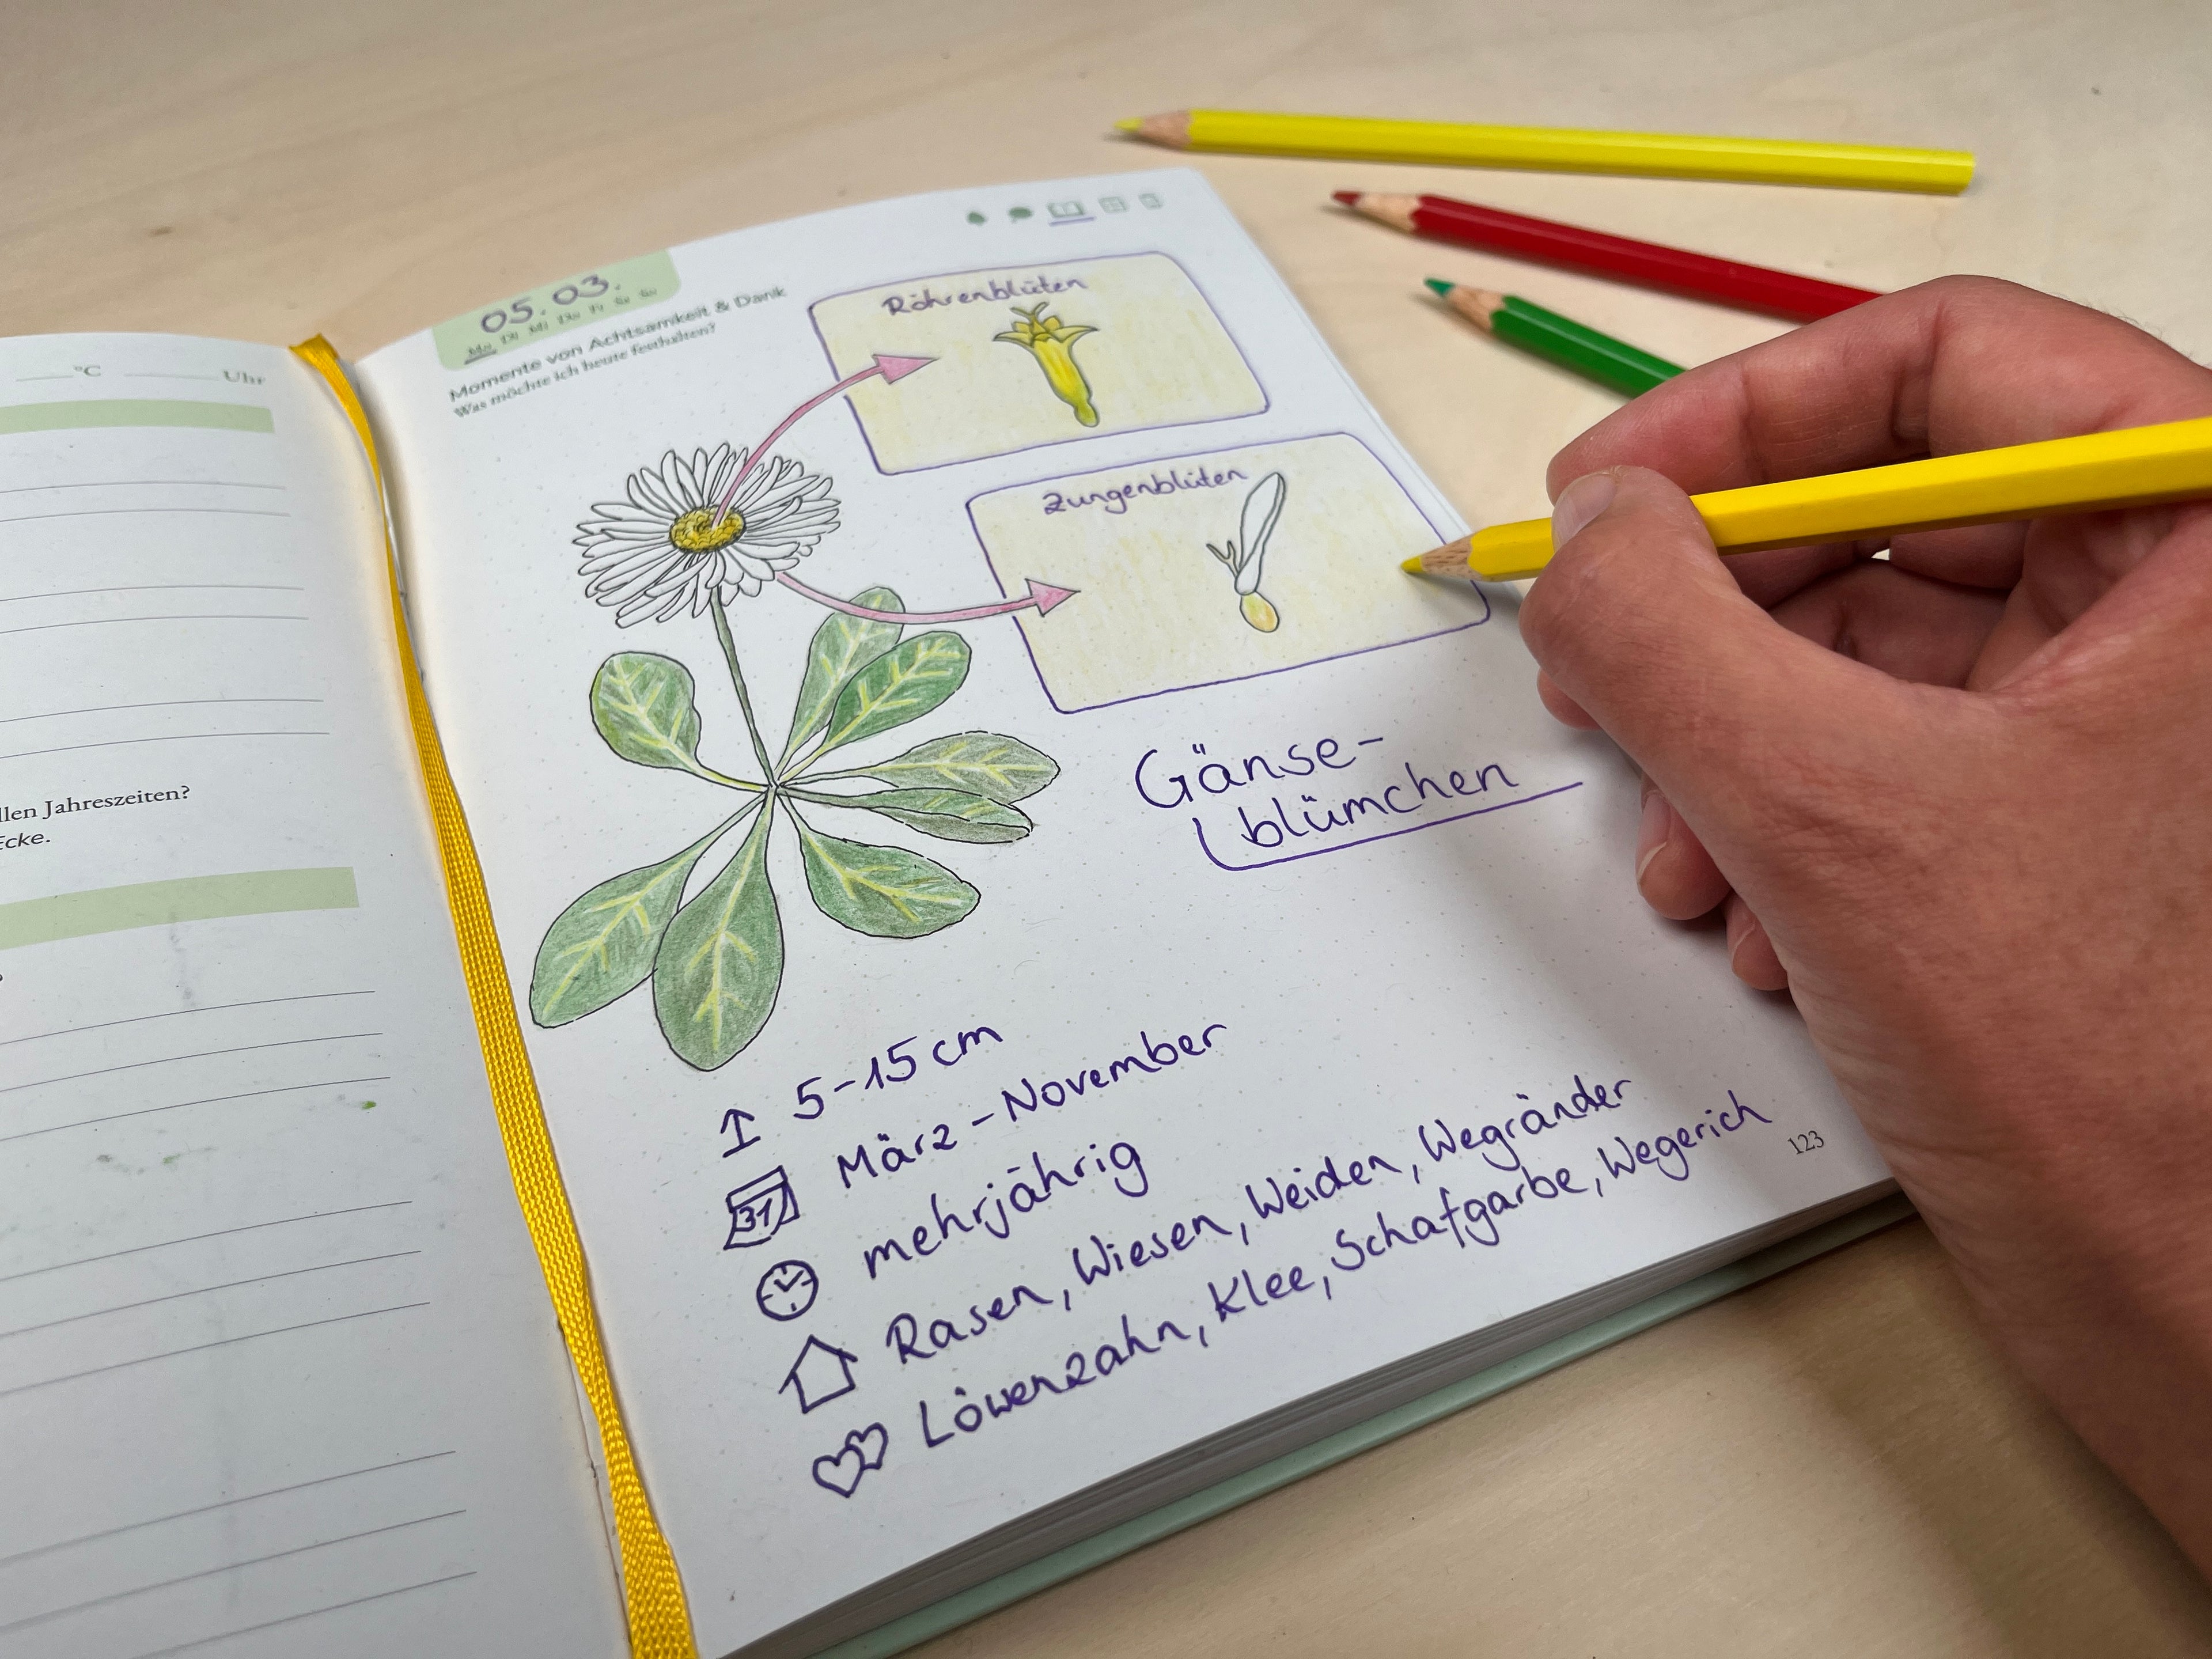 °C Uhr
llen Jahreszeiten?
Ecke.
?
05. 03.
Mo Di Mi Do Fr Sa So
Momente von Achtsamkeit & Dank
Was möchte ich heute festhalten?
Röhrenblüten
Zungenblüten
Gänse-
blümchen
5-15 cm
31 März - November
mehrjährig
Rasen, Wiesen, Weiden, Wegränder
Löwenzahn, Klee, Schafgarbe, Wegerich
123